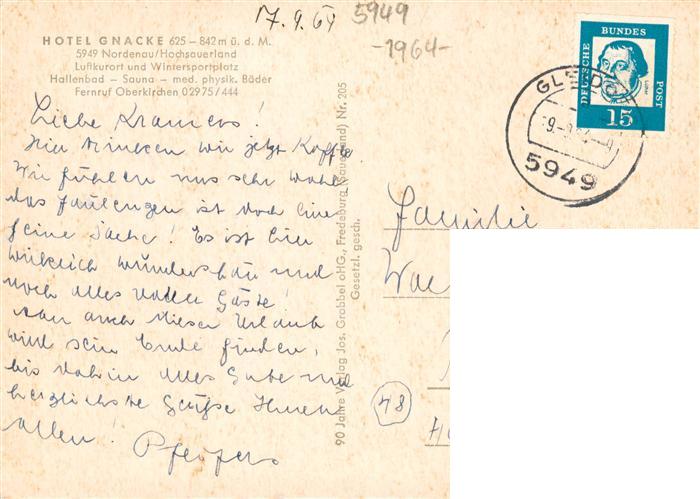 17.9.64 5949
-1964-
HOTEL GNACKE 625 – 842 m ü. d. M.
5949 Nordenau/Hochsauerland
Luftkurort und Wintersportplatz
Hallenbad – Sauna – med. physik. Bäder
Fernruf Oberkirchen 02975/444
Liebe Kramers!
Hier trinken wir jetzt Kaffee.
Wir fühlen uns sehr wohl
das faulenzen ist doch eine
feine Sache! Es ist hier
wirklich wunderschön und
noch alles voller Gäste!
Aber auch dieser Urlaub
wird sein Ende finden,
bis dahin alles Gute und
herzlichste Grüße Ihnen
allen! Pfeifers
90 Jahre Verlag Jos. Grobbel oHG., Fredeburg (Sauerland) Nr. 205
Gesetzl. gesch.
DEUTSCHE BUNDES POST
Luther
15
5949
Familie
48